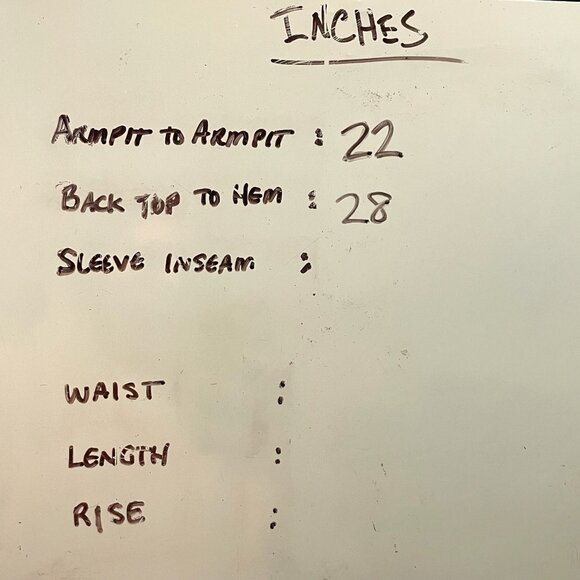 INCHES
ARMPIT TO ARMPIT : 22
BACK TOP TO HEM : 28
SLEEVE INSEAM :
WAIST :
LENGTH :
RISE :